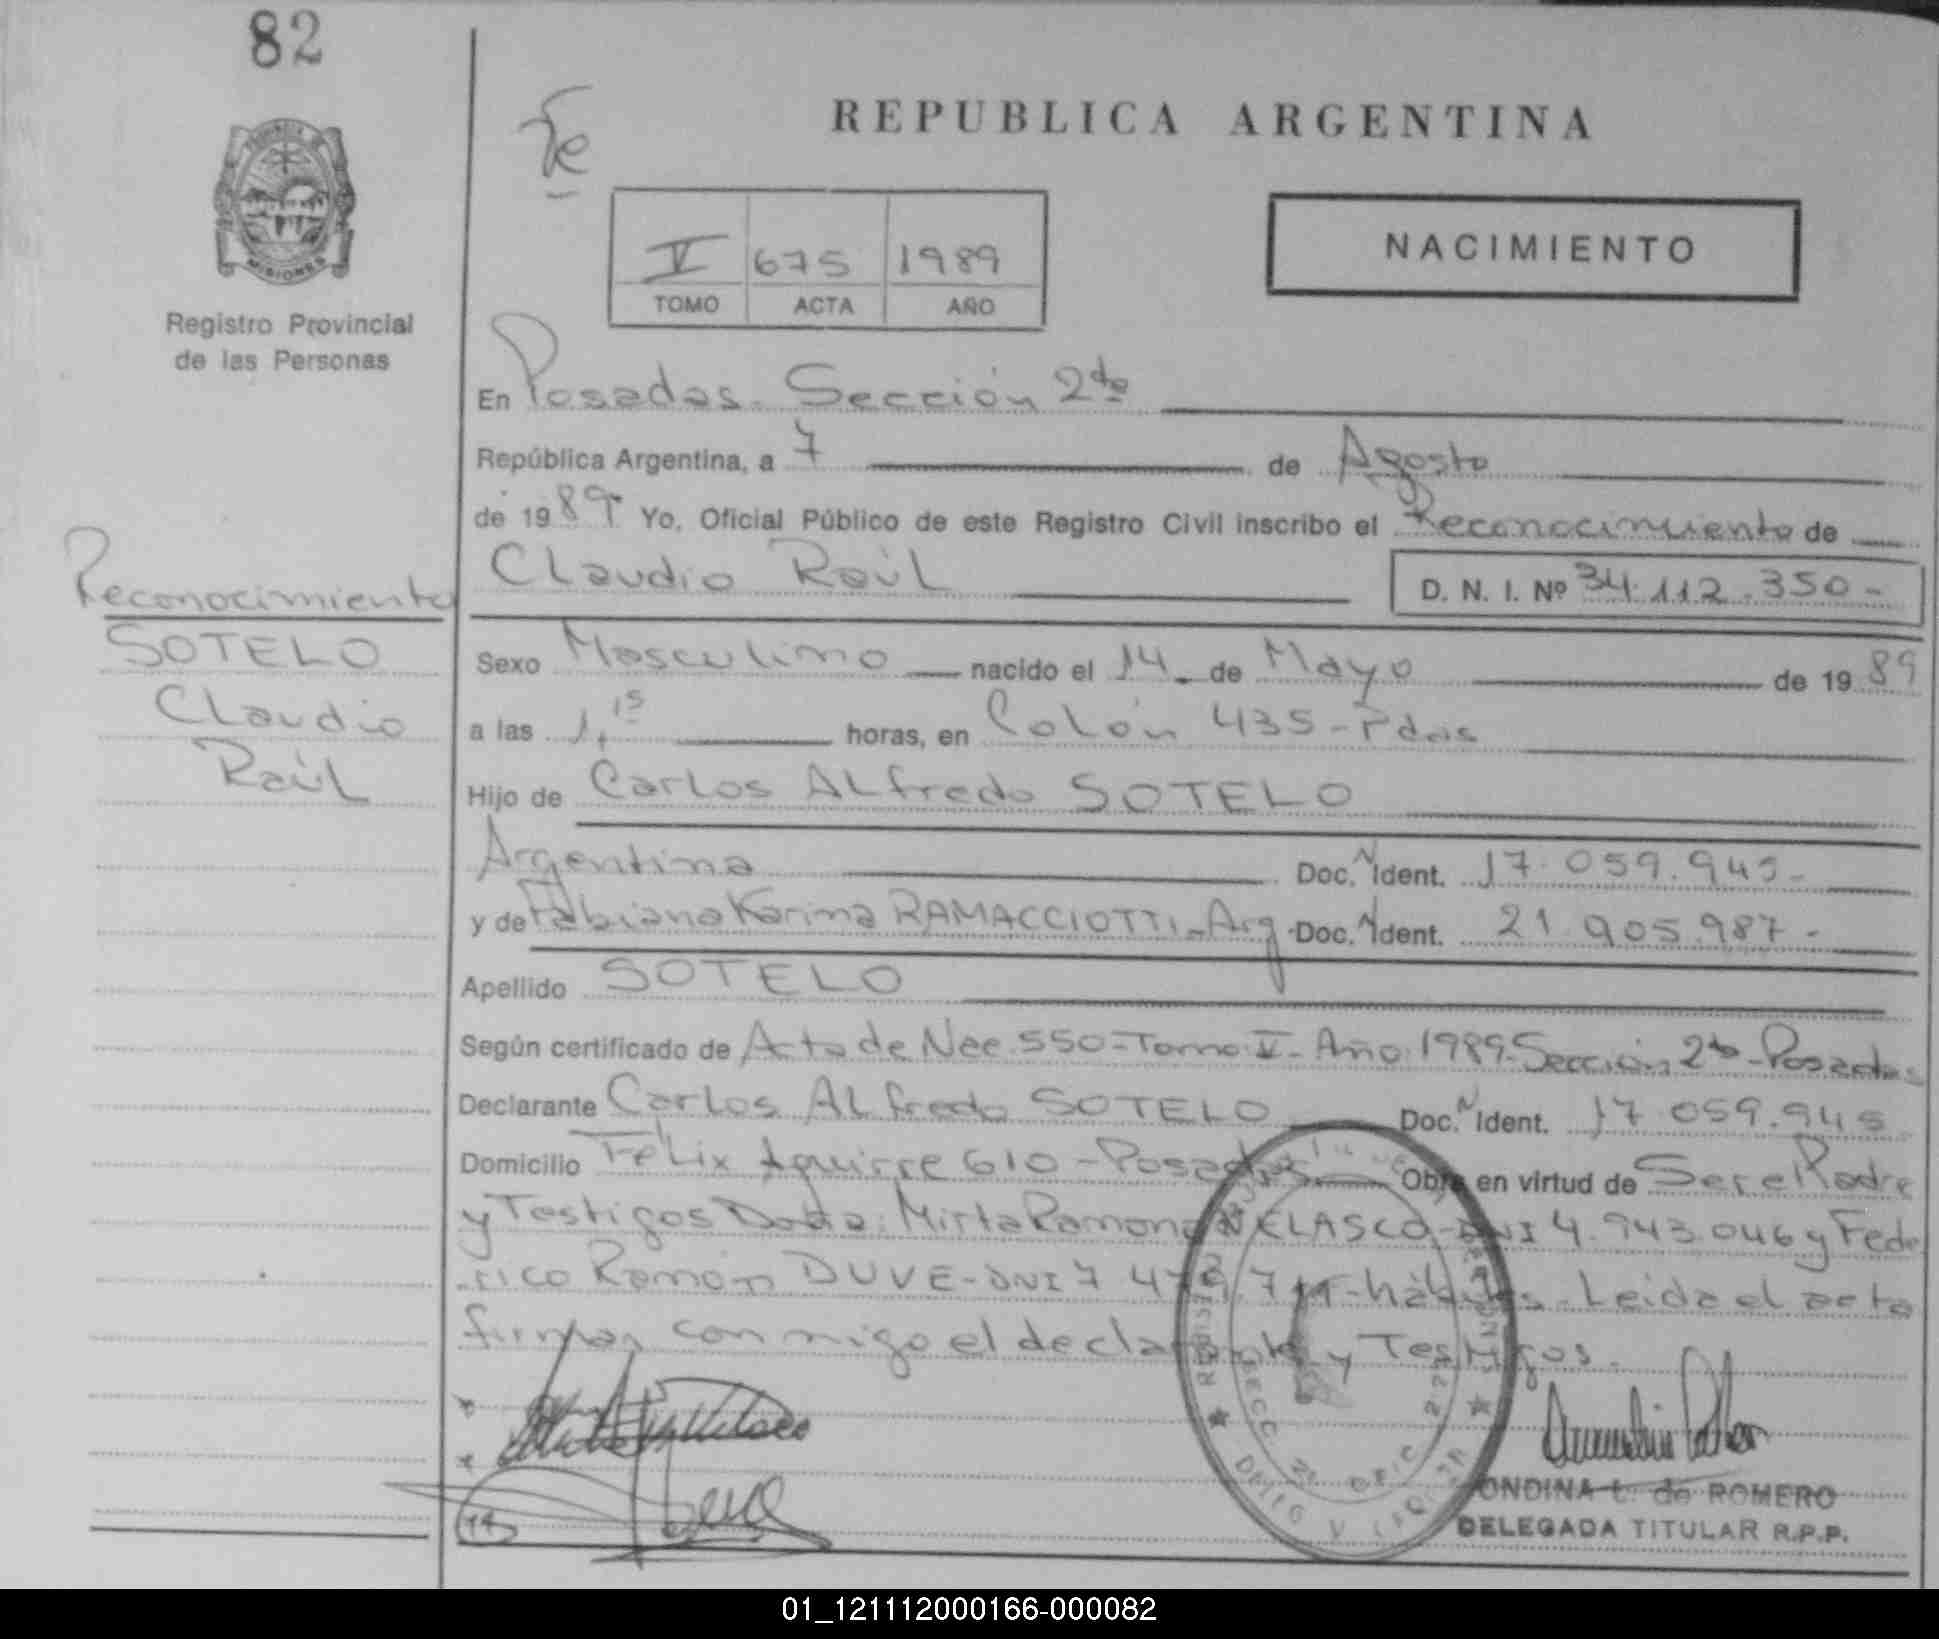 82
REPUBLICA ARGENTINA
Fe
NACIMIENTO
V 675 1989
TOMO ACTA AÑO
MISIONES
Registro Provincial
de las Personas
En Posadas. Sección 2da
República Argentina, a 7 de Agosto
de 1989 Yo, Oficial Público de este Registro Civil inscribo el Reconocimiento de
Claudio Raúl D. N. I. Nº 34.112.350-
Reconocimiento
SOTELO
Claudio
Raúl
Sexo Masculino nacido el 14 de Mayo de 1989
a las 1,15 horas, en Colón 435-Pdas
Hijo de Carlos ALfredo SOTELO
Argentina Doc. Ident. 17.059.945-
y de Fabiana Karina RAMACCIOTTI-Arg. Doc. Ident. 21.905.987-
Apellido SOTELO
Según certificado de Acta de Nac. 550-Tomo V-Año 1989-Sección 2da-Posadas
Declarante Carlos ALfredo SOTELO Doc. Ident. 17.059.945
Domicilio Félix Aguirre 610-Posadas Obra en virtud de Ser el Padre
y Testigos Mirta Ramona VELASCO-DNI 4.943.046 y Fede
rico Ramón DUVE-DNI 7 hábiles-Leida el acta
firman conmigo el declarante y Testigos.
ONDINA L. de ROMERO
DELEGADA TITULAR R.P.P.
01_121112000166-000082